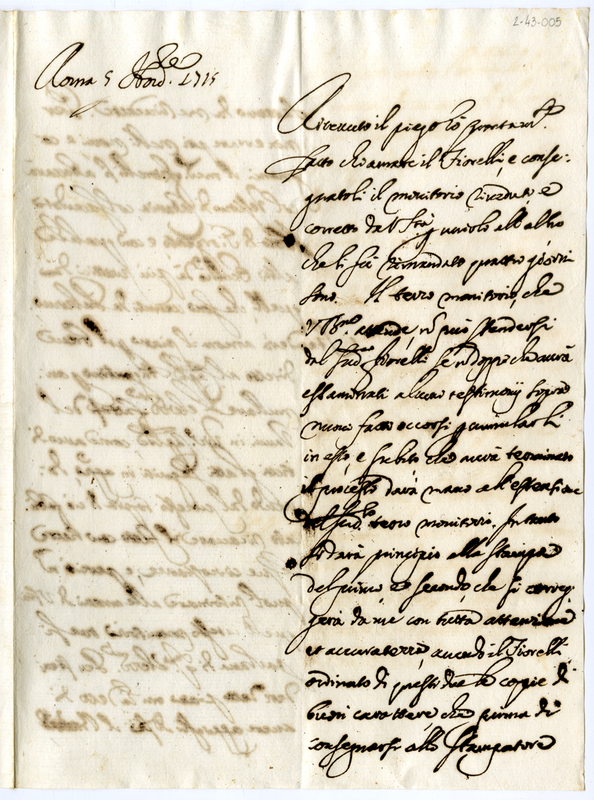 2-43-005
Roma 5 9bre 1715
Ricevuto il piego
fatto chiamare il Fiorelli, e conse-
gnatoli il monitorio riveduto, e
corretto da V. Sria, unirlo all'altro
che li fù rimandato quattro giorni
sono. Il terzo monitorio, che
attende, nō può stendersi
dal sud.o Fiorelli se nō doppo che aurà
essaminati alcuni testimonij sopra
nuovi fatti occorsi p annularli
in esso, e subito che aurà terminato
il processo darà mano all'estensione
del sud.to terzo monitorio. In tanto
si darà principio alla stampa
del primo, e secondo che si correg-
gerà da me con tutta attenzione
et accuratezza, avendo il Fiorelli
ordinato di questi due le copie di
buon carattere che prima di
consegnarsi allo Stampatore